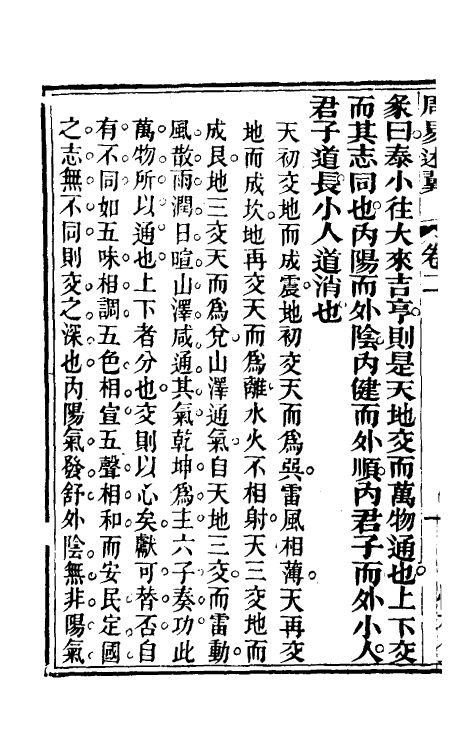 周易述翼　卷二
彖曰泰小往大來吉亨則是天地交而萬物通也上下交
而其志同也內陽而外陰內健而外順內君子而外小人
君子道長小人道消也
天初交地而成震地初交天而爲巽雷風相薄天再交
地而成坎地再交天而爲離水火不相射天三交地而
成艮地三交天而爲兌山澤通氣自天地三交而雷動
風散雨潤日暄山澤咸通其氣乾坤爲主六子奏功此
萬物所以通也上下者分也交則以心矣獻可替否自
有不同如五味相調五色相宣五聲相和而安民定國
之志無不同則交之深也內陽氣發舒外陰無非陽氣